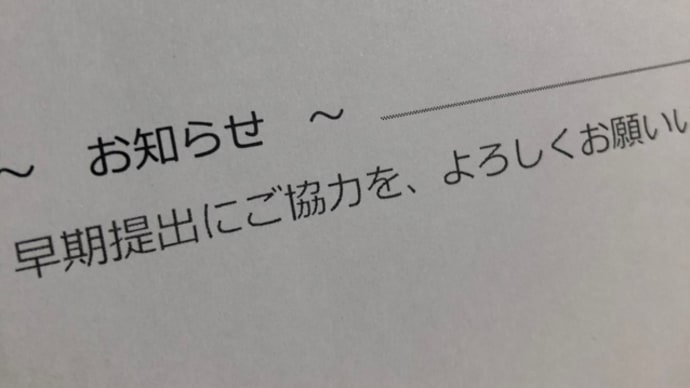 ～ お知らせ ～
早期提出にご協力を、よろしくお願いい